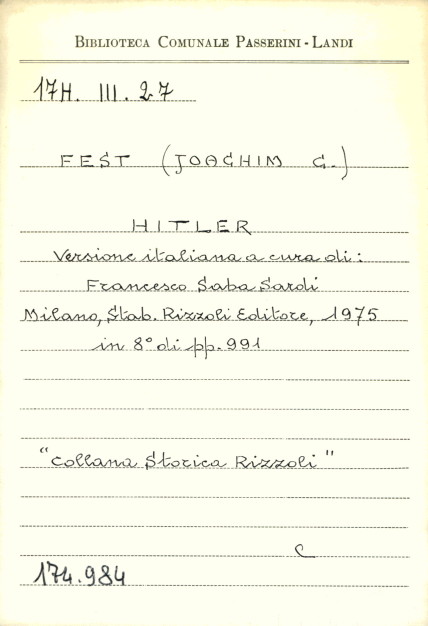 BIBLIOTECA COMUNALE PASSERINI-LANDI
17H. III. 27
FEST (JOACHIM C.)
HITLER
Versione italiana a cura di:
Francesco Saba Sardi
Milano, Stab. Rizzoli Editore, 1975
in 8° di pp. 991
"Collana Storica Rizzoli"
C
174.984